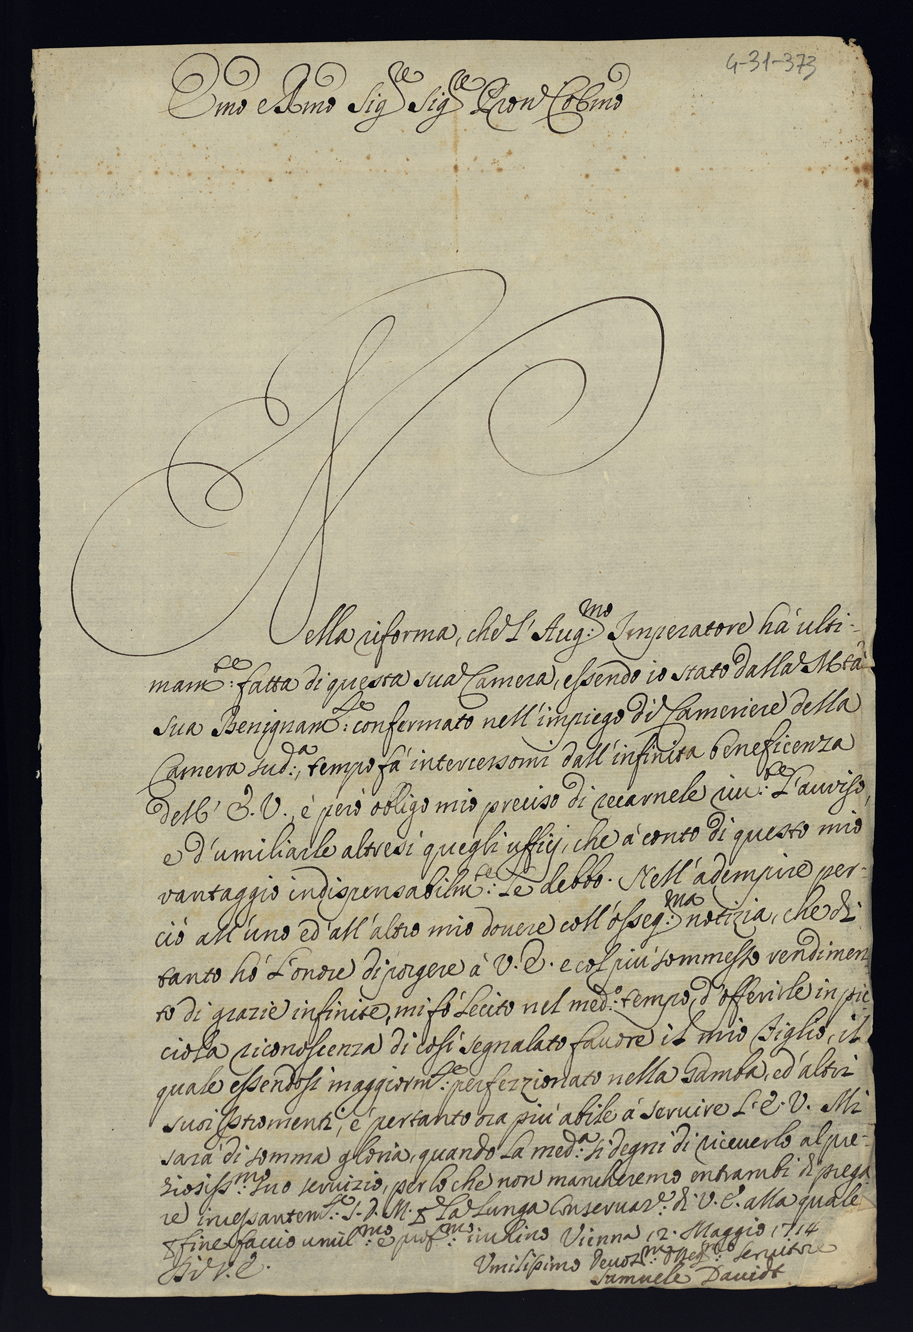 4-31-373
Emo e Rmo Sig.re Sig.re Pron Colmo
Nella riforma, che L'Aug:mo Imperatore hà ulti-
mam.te: fatta di questa sua Camera, essendo io stato dalla Mtà
sua Benignam.te: confermato nell'impiego di Cameriere della
Camera sud:a, tempo fà intercessomi dall'infinita beneficenza
dell' E.V., è però obligo mio preciso di recarnele riv:te L'avviso,
e d'umiliarle altresì quegli ufficj, che à conto di questo mio
vantaggio indispensabilm:te Le debbo. Nell'adempire per-
ciò all'uno ed'all'altro mio dovere coll'osseq:ma notizia, che di
tanto hò L'onore di porgere à V.E. e col più sommesso rendimen
to di grazie infinite, mi fò Lecito nel med:o tempo, d'offerirle in pic
ciola riconoscenza di così segnalato favore il mio Figlio, il
quale essendosi maggiorm.te: perfezzionato nella Gamba, ed'altri
suoi stromenti, è pertanto ora più abile à servire L'E.V. Mi
sarà di somma gloria, quando La med:a si degni di riceverlo al pre-
ziosiss:mo suo servizio, perloche non mancheremo entrambi di prega
re incessantem.te: S.D.M. p La Lunga Conservaz.e: di V.E. alla quale
p fine faccio umil:mo e prof:mo inchino Vienna 12. Maggio 1714
Di V.E.
Umilissimo Devot:mo Osseq:mo Servitore
Samuele Davidt